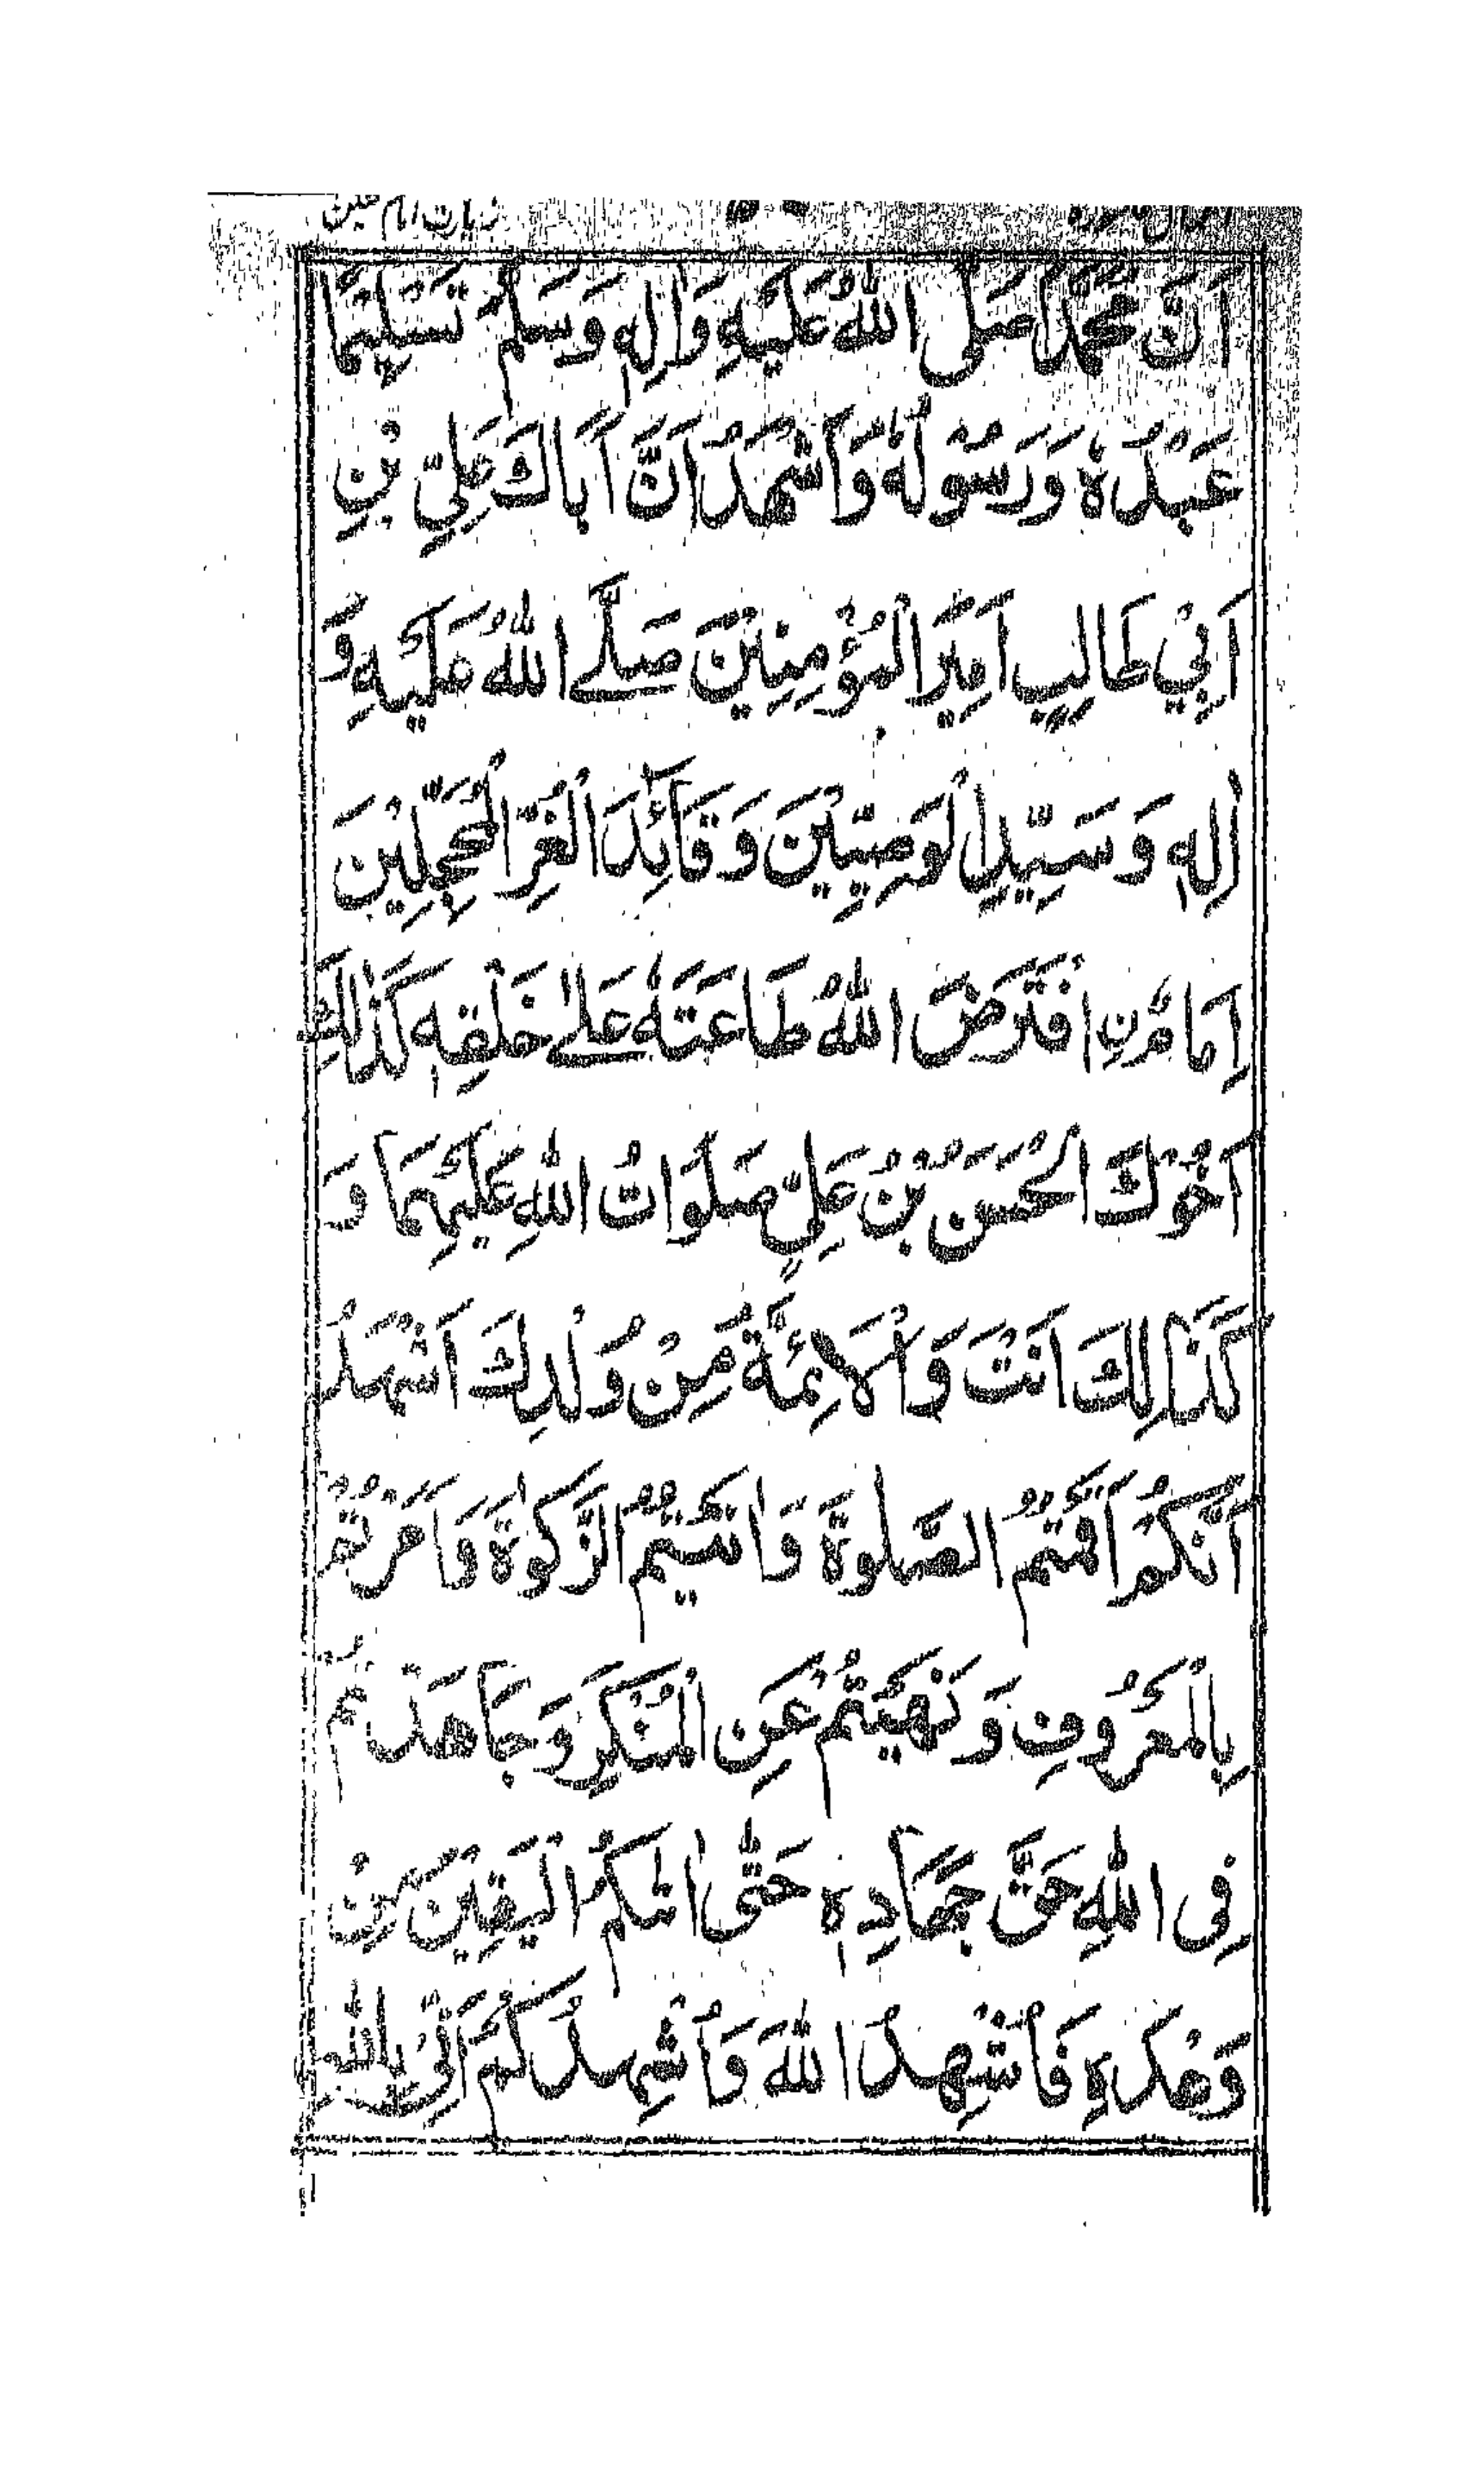 زیارت امام حسین
اَنَّ مُحَمَّدًا صَلَّى اللّٰهُ عَلَيْهِ وَاٰلِهٖ وَسَلَّمَ تَسْلِيْمًا
عَبْدُهٗ وَرَسُوْلُهٗ وَاَشْهَدُ اَنَّ اَبَاكَ عَلِيِّ بْنِ
اَبِيْ طَالِبٍ اَمِيْرَ الْمُؤْمِنِيْنَ صَلَّے اللّٰهُ عَلَيْهِ وَ
اٰلِهٖ وَسَيِّدِ الْوَصِيِّيْنَ وَقَآئِدَ الْغُرِّ الْمُحَجَّلِيْنَ
اِمَامُ نِ افْتَرَضَ اللّٰهُ طَاعَتَهٗ عَلٰے خَلْقِهٖ كَذٰلِكَ
اَخُوْكَ الْحَسَنُ بْنُ عَلِيٍّ صَلَوَاتُ اللّٰهِ عَلَيْهِمَا وَ
كَذَالِكَ اَنْتَ وَالْاَئِمَّةُ مِنْ وُلْدِكَ اَشْهَدُ
اَنَّكُمْ اَقَمْتُمُ الصَّلٰوةَ وَاٰتَيْتُمُ الزَّكٰوةَ وَاَمَرْتُمْ
بِالْمَعْرُوْفِ وَنَهَيْتُمْ عَنِ الْمُنْكَرِ وَجَاهَدْتُمْ
فِى اللّٰهِ حَقَّ جِهَادِهٖ حَتّٰى اَتٰىكُمُ الْيَقِيْنُ مِنْ
وَعْدِهٖ فَاُشْهِدُ اللّٰهَ وَاُشْهِدُكُمْ اَنِّيْ بِاللّٰهِ